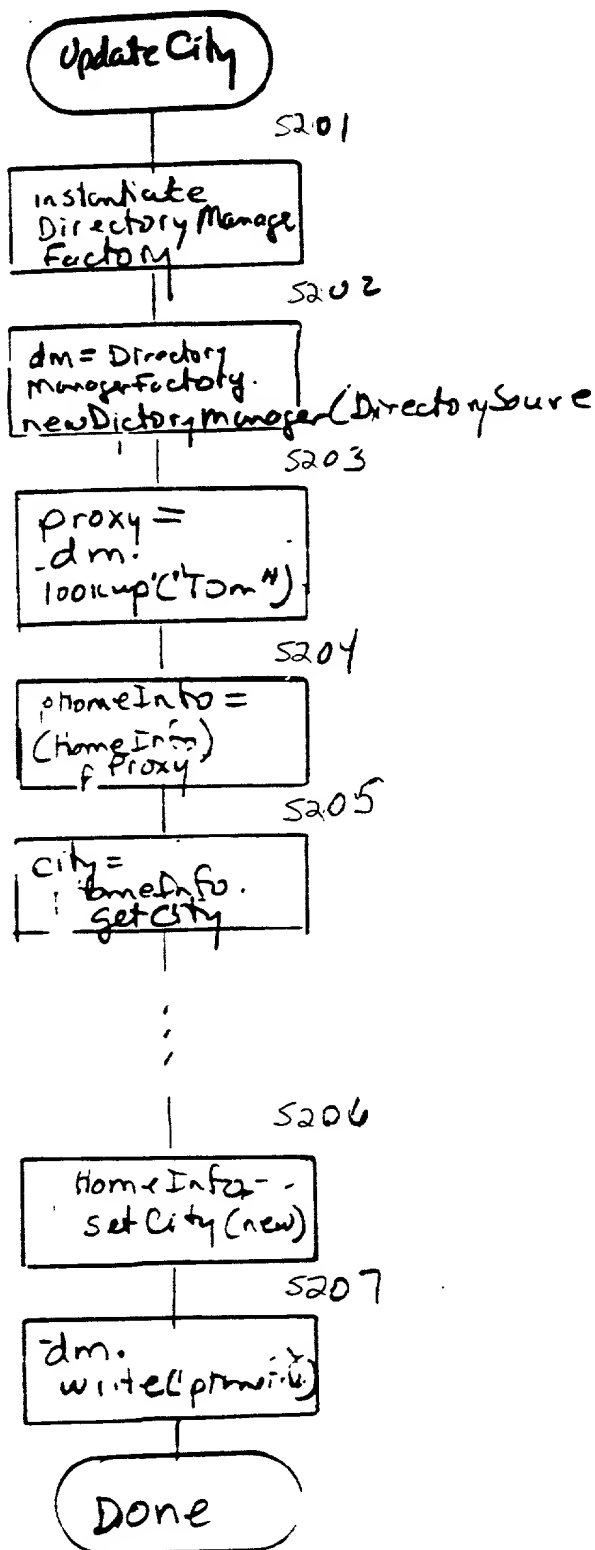 Update City
S201
instantiate
Directory Manage
Factory
S202
dm = Directory
ManagerFactory.
newDictoryManager(DirectorySource
S203
proxy =
dm.
lookup("Tom")
S204
HomeInfo =
(HomeInfo)
Proxy
S205
city =
HomeInfo.
getCity
S206
HomeInfo
setCity(new)
S207
dm.
write(
Done